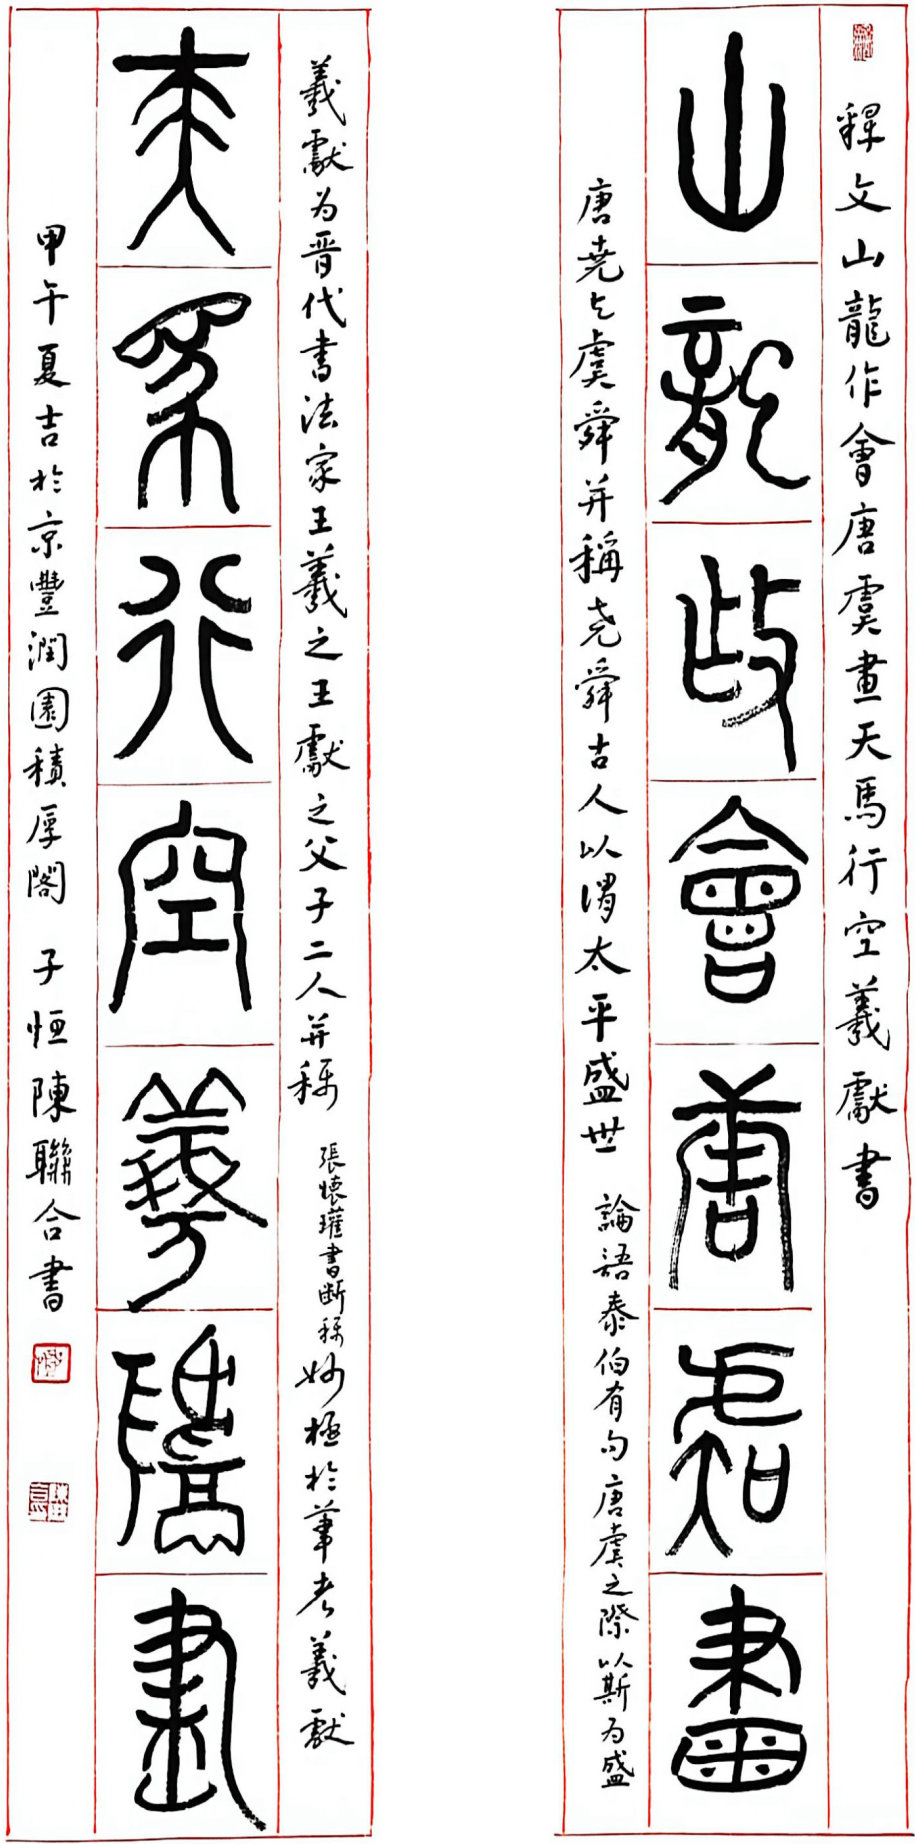 釋文山龍作會唐虞畫天馬行空羲獻書
山龍作會唐虞畫
唐尭与虞舜并稱尧舜古人以谓太平盛世 論語泰伯有句唐虞之際以斯为盛
羲獻为晋代书法家王羲之王獻之父子二人并称 張懷瓘書断稱妙極於筆者羲獻
天馬行空羲獻書
甲午夏吉於京豐潤園積厚閣 子恒陳聯合書